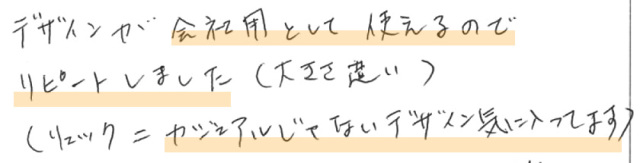 デザインが会社用として使えるので
リピートしました(大きさ違い)
(リュック=カジュアルじゃないデザイン気に入ってます)